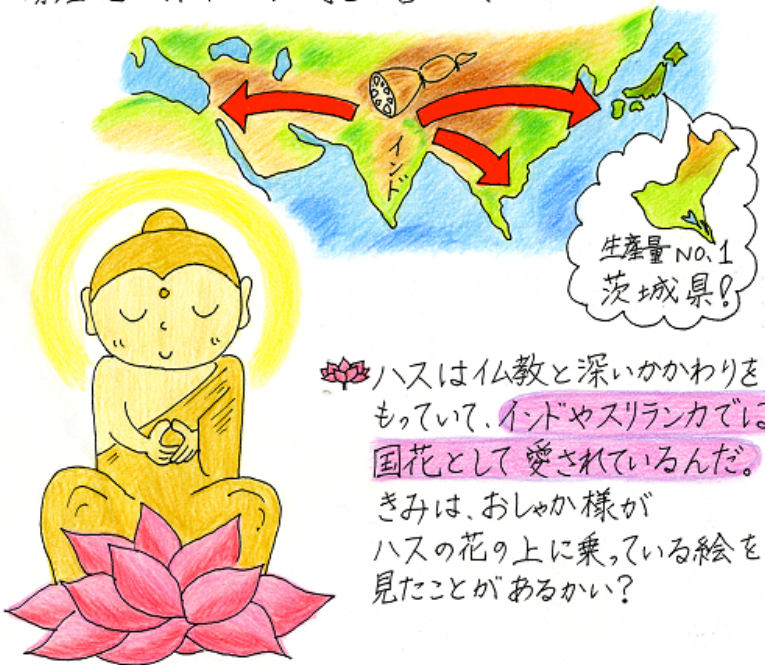 インド
生産量NO.1
茨城県!
ハスは仏教と深いかかわりを
もっていて、インドやスリランカでは
国花として愛されているんだ。
きみは、おしゃか様が
ハスの花の上に乗っている絵を
見たことがあるかい?